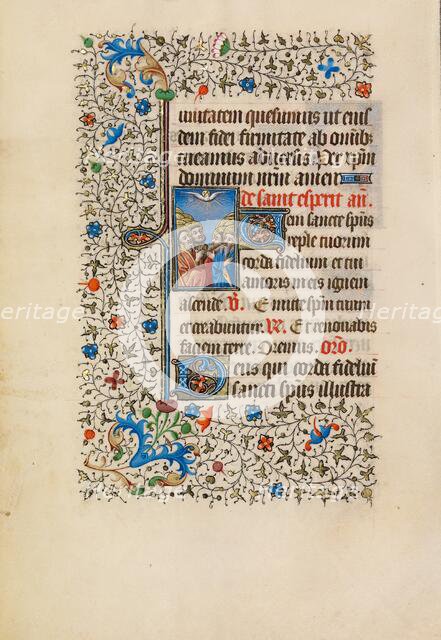 unitatem quesumus ut eius
dem fidei firmitate ab omnib
muniamur adversis. Per xpm
dominum nrm amen
de saint esperit añ.
Veni sancte spūs
reple tuorum
corda fidelium et tui
amoris in eis ignem
ascende. V. Emitte spm tuum
et creabuntur. Re. Et renovabis
faciem terre. Oremus. oro.
Deus qui corda fidelium
sancti spūs illustra
Heritage
Heritage
Heritage
Heritage